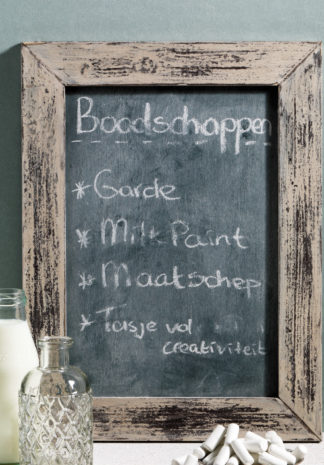 Boodschappen
* Garde
* Milk Paint
* Maatschep
* Tasje vol
creativiteit